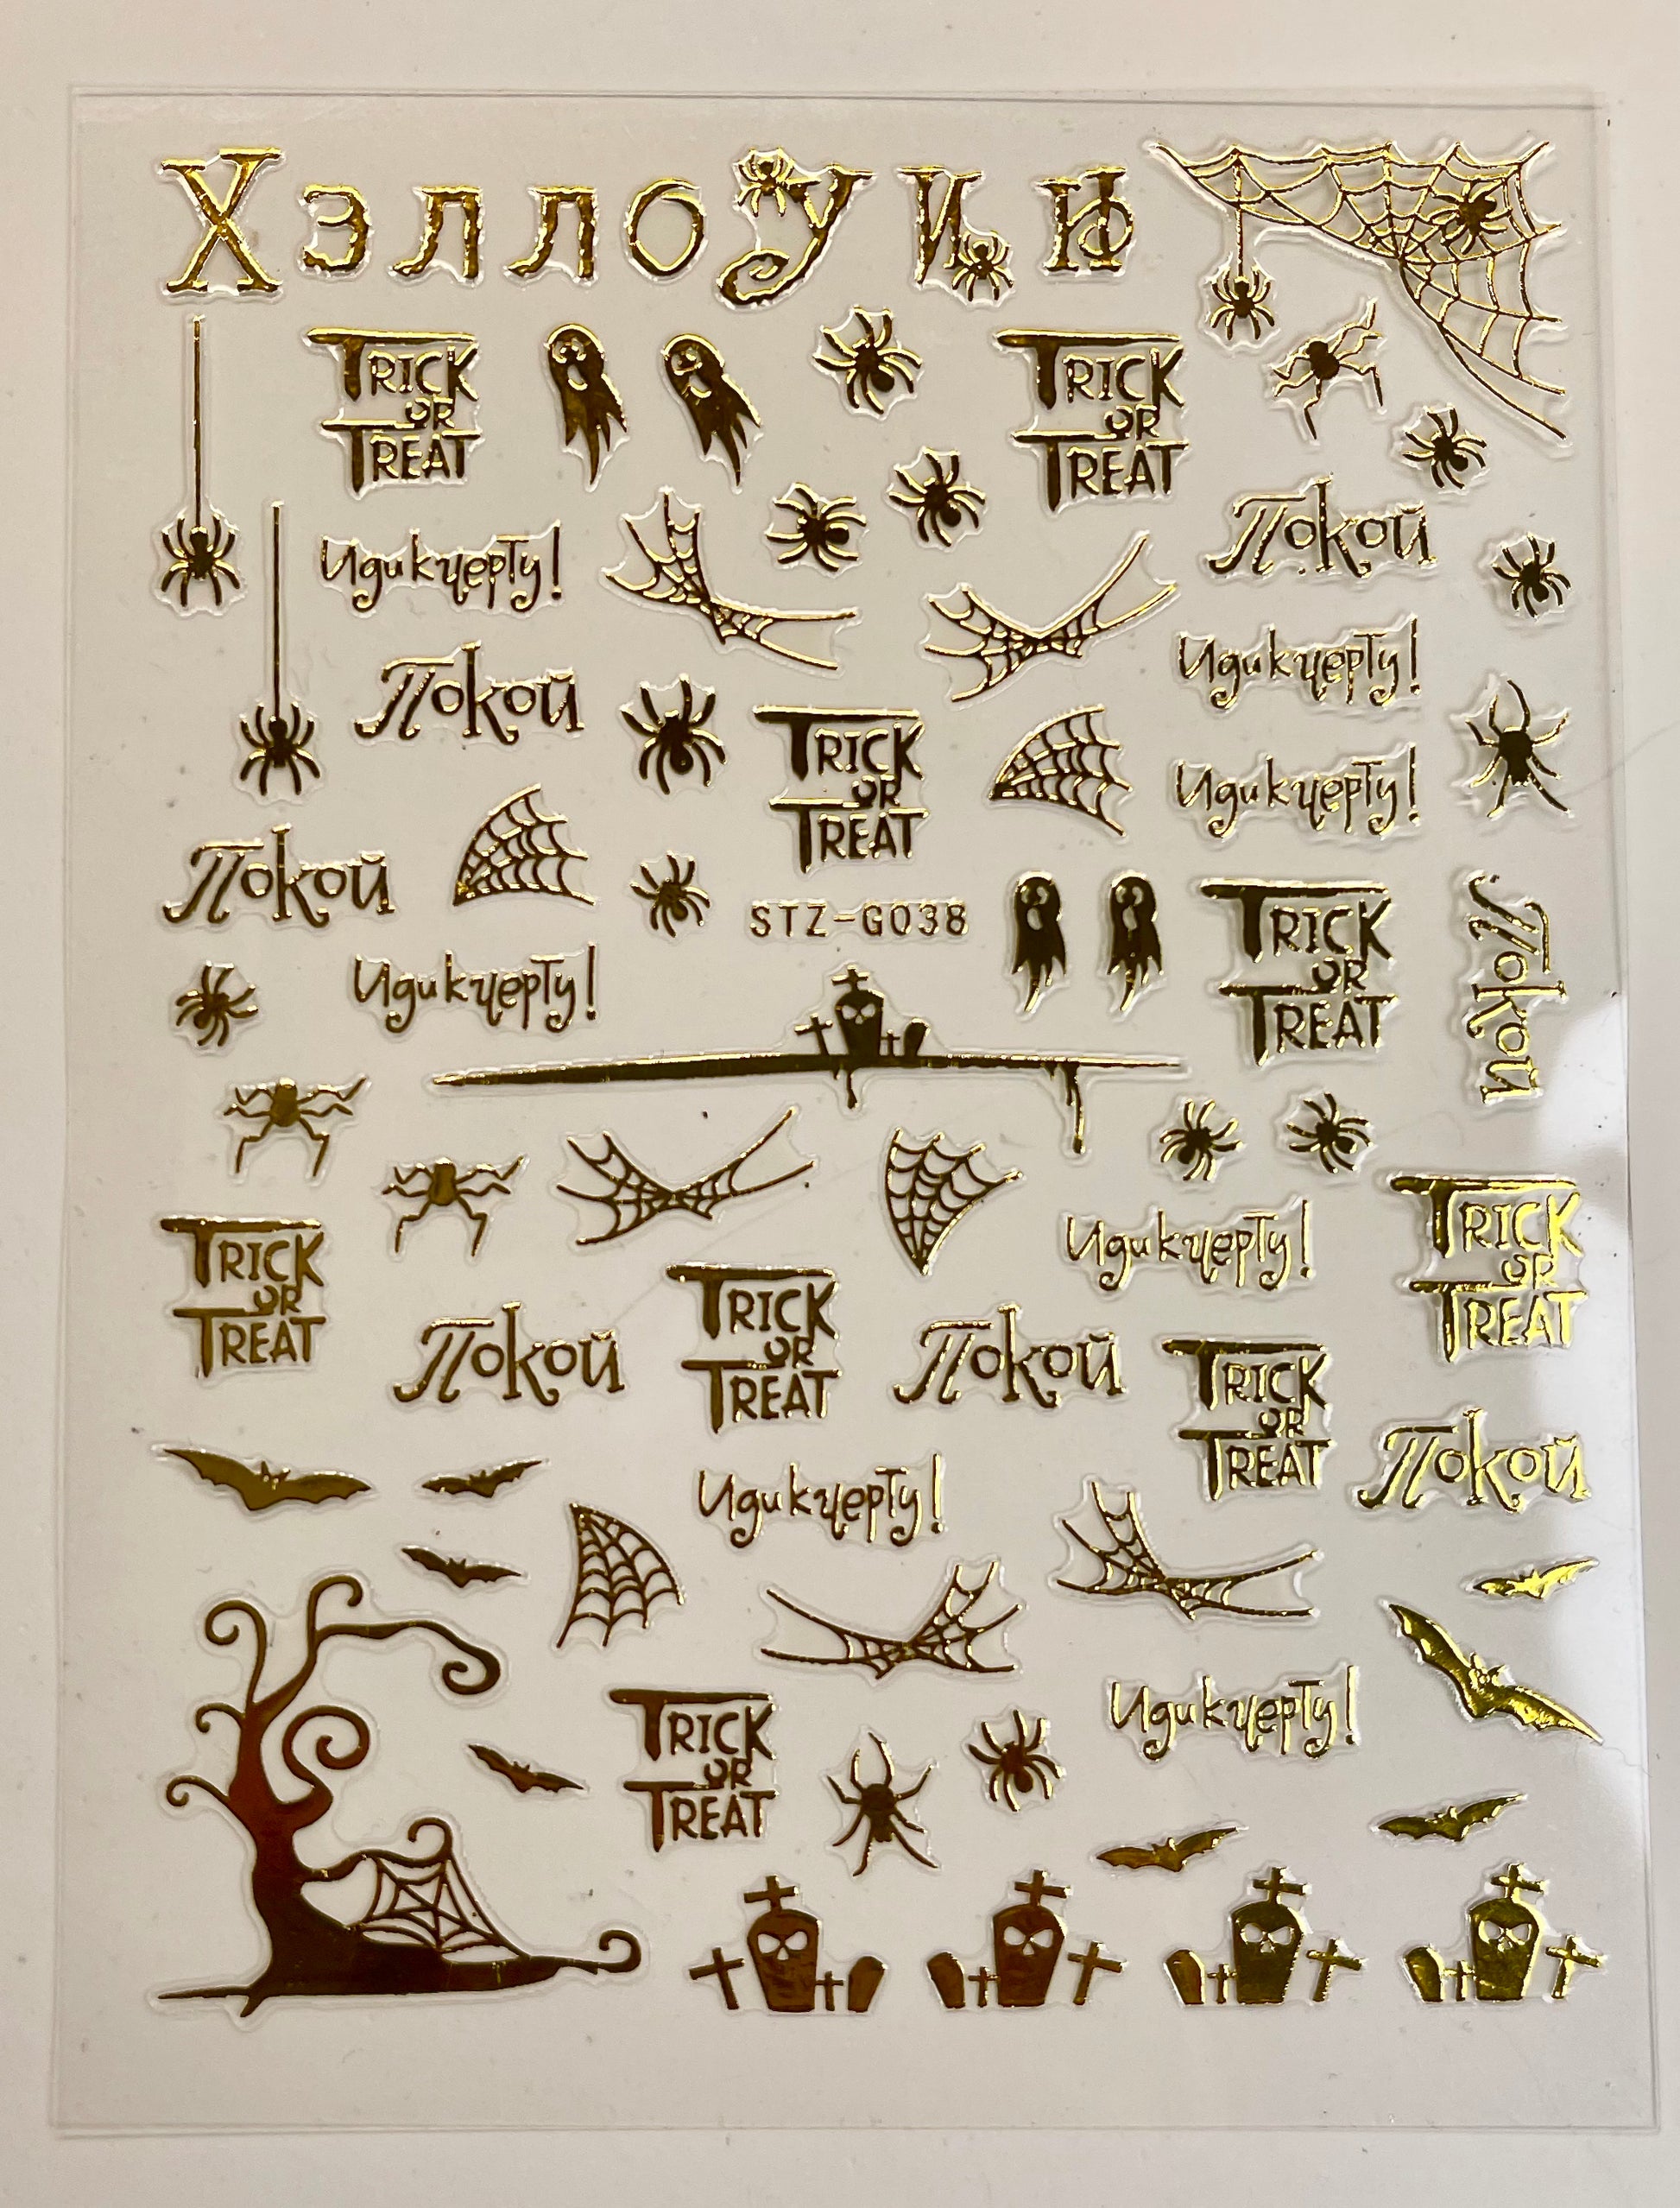 Хэллоуин
TRICK
OR
TREAT
TRICK
OR
TREAT
Покой
Иди к черту!
Иди к черту!
Покой
TRICK
OR
TREAT
Иди к черту!
Покой
STZ-G038
TRICK
OR
TREAT
Покой
Иди к черту!
Иди к черту!
TRICK
OR
TREAT
TRICK
OR
TREAT
TRICK
OR
TREAT
Покой
Покой
TRICK
OR
TREAT
Покой
Иди к черту!
Иди к черту!
TRICK
OR
TREAT